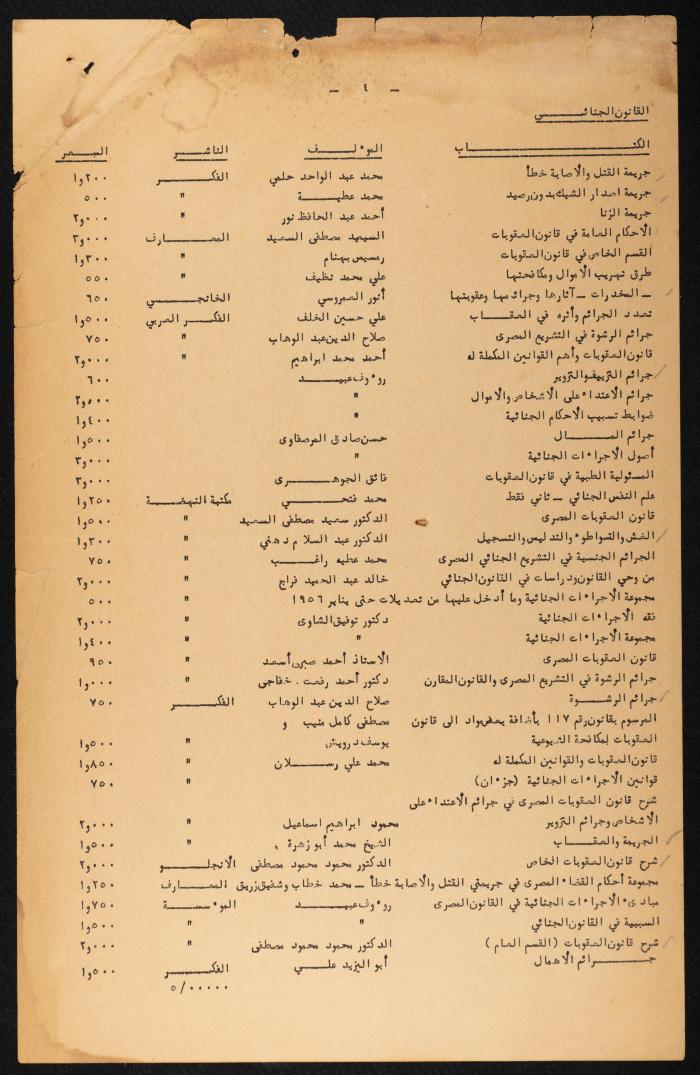 — ٤ —
القانون الجنائــــــي
الكتـــــــــــــــــــاب المؤلــــف الناشـــر السعـــر
جريمة القتل والاصابة خطأ محمد عبد الواحد حلمي الفكـــر ١٫٢٠٠
جريمة اصدار الشيك بدون رصيد محمد عطيـــة " ٥٠٠
جريمة الزنا أحمد عبد الحافظ نور " ٢٫٠٠٠
الاحكام العامة في قانون العقوبات السيد مصطفى السعيد المعـــارف ٣٫٠٠٠
القسم الخاص في قانون العقوبات رمسيس بهنام " ١٫٣٠٠
طرق تهريب الاموال ومكافحتها علي محمد نظيف " ٥٥٠
— المخدرات — آثارها وجرائمها وعقوبتها أنور العمروسي الخانجـــي ٦٥٠
تعدد الجرائم وأثره في العقـــاب علي حسين الخلف الفكـــر العربي ١٫٥٠٠
جرائم الرشوة في التشريع المصرى صلاح الدين عبد الوهاب " ٧٥٠
قانون العقوبات وأهم القوانين المكملة له أحمد محمد ابراهيم " ٢٫٠٠٠
جرائم التزييف والتزوير رووف عبيـــد ٦٠٠
جرائم الاعتداء على الاشخاص والاموال " ٢٫٥٠٠
ضوابط تسبيب الاحكام الجنائية " ١٫٤٠٠
جرائم المـــال حسن صادق المرصفاوى ١٫٥٠٠
أصول الاجراءات الجنائية " ٣٫٠٠٠
المسئولية الطبية في قانون العقوبات فائق الجوهـــرى ٣٫٠٠٠
علم النفس الجنائي — ثاني نقط محمد فتحـــي مكتبة النهضـــة ١٫٢٥٠
قانون العقوبات المصرى الدكتور سعيد مصطفى السعيد " ١٫٥٠٠
الغش والتواطوء والتدليس والتسجيل الدكتور عبد السلام ذهني " ١٫٣٠٠
الجرائم الجنسية في التشريع الجنائي المصرى محمد عطيه راغـــب " ٧٥٠
من وحي القانون ودراسات في القانون الجنائي خالد عبد الحميد فراج " ٢٫٠٠٠
مجموعة الاجراءات الجنائية وما أدخل عليها من تعديلات حتى يناير ١٩٥٦ " ٥٠٠
فقه الاجراءات الجنائية دكتور توفيق الشاوى " ٢٫٠٠٠
مجموعة الاجراءات الجنائية " " ١٫٤٠٠
قانون العقوبات المصرى الاستاذ أحمد صبرى أسعد " ٩٥٠
جرائم الرشوة في التشريع المصرى والقانون المقارن دكتور أحمد رفعت خفاجى " ١٫٠٠٠
جرائم الرشـــوة صلاح الدين عبد الوهاب الفكـــر ٧٥٠
المرسوم بقانون رقم ١١٧ بأضافة بعض مواد الى قانون مصطفى كامل منيب و
العقوبات لمكافحة الشيوعية يوسف درويش " ١٫٥٠٠
قانون العقوبات والقوانين المكملة له محمد علي رســـلان " ١٫٨٥٠
قوانين الاجراءات الجنائية (جزءان) " ٧٥٠
شرح قانون العقوبات المصرى في جرائم الاعتداء على
الاشخاص وجرائم التزوير محمود ابراهيم اسماعيل " ٢٫٠٠٠
الجريمة والعقـــاب الشيخ محمد أبو زهرة " ١٫٥٠٠
شرح قانون العقوبات الخاص الدكتور محمود محمود مصطفى الانجلـــو ٢٫٠٠٠
مجموعة أحكام القضاء المصرى في جريمتي القتل والاصابة خطأ — محمد خطاب وشفيق زريق المعـــارف ١٫٢٥٠
مبادىء الاجراءات الجنائية في القانون المصرى رووف عبيـــد الموسســـة ١٫٧٥٠
السببية في القانون الجنائي " " ١٫٥٠٠
شرح قانون العقوبات (القسم العام) الدكتور محمود محمود مصطفى " ٢٫٠٠٠
جـــرائم الاهمال أبو اليزيد علـــي الفكـــر ١٫٥٠٠
٥/٠٠٠٠٠